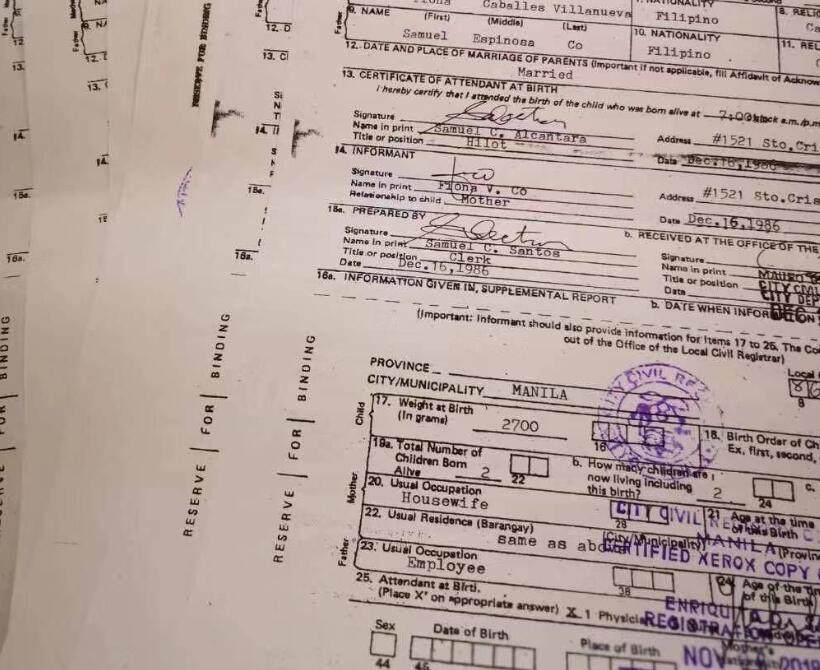 Caballes Villanueva
NATIONALITY
Filipino
8. RELIG
9. NAME
(First) (Middle) (Last)
Samuel Espinosa Co
10. NATIONALITY
Filipino
11. REL
12. DATE AND PLACE OF MARRIAGE OF PARENTS (Important if not applicable, fill Affidavit of Acknow
Married
13. CERTIFICATE OF ATTENDANT AT BIRTH
I hereby certify that I attended the birth of the child who was born alive at 7:00 o'clock a.m./p.m
Signature
Name in print Samuel C. Alcantara
Title or position Hilot
Address #1521 Sto.Cri
Date Dec.16,1986
14. INFORMANT
Signature
Name in print Fiona V. Co
Relationship to child Mother
Address #1521 Sto.Cris
Date Dec.16,1986
15a. PREPARED BY
Signature
Name in print Samuel C. Santos
Title or position Clerk
Date Dec.16,1986
b. RECEIVED AT THE OFFICE OF THE
Signature
Name in print
Title or position
Date
16a. INFORMATION GIVEN IN SUPPLEMENTAL REPORT
b. DATE WHEN INFOR
(Important: Informant should also provide information for Items 17 to 25. The Co
out of the Office of the Local Civil Registrar)
PROVINCE
CITY/MUNICIPALITY MANILA
Local
Child
17. Weight at Birth
(In grams) 2700
18. Birth Order of Ch
Ex. first, second,
Mother
19a. Total Number of
Children Born
Alive 2
22
b. How many children are
now living including
this birth? 2
24
c.
20. Usual Occupation
Housewife
28
21 Age at the time
of this Birth
22. Usual Residence (Barangay)
same as above
(City/Municipality)
(Provin
Father
23. Usual Occupation
Employee
38
24 Age of the
of this Birth
25. Attendant at Birth
(Place X' on appropriate answer) X 1 Physicia
CITY CIVIL RE
MANILA
CERTIFIED XEROX COPY
ENRIQU
REGISTRATION
NOV
Sex
44
Date of Birth
Place of Birth
RESERVE FOR BINDING
RESERVE FOR BINDING
RESERVE FOR BINDING